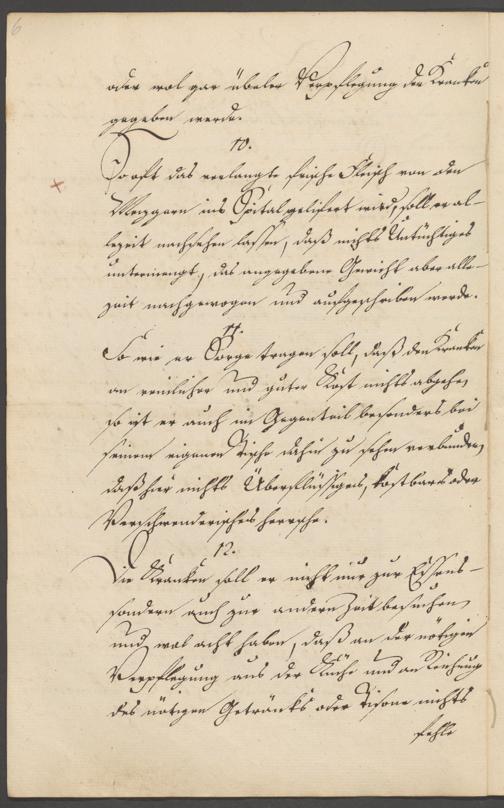 6
oder wol gar übeler Verpflegung der Kranken
gegeben werde.
10.
So oft das verlangte frische Fleisch von den
Mezgern ins Spital geliefert wird, soll er al-
lezeit nachsehen lassen, daß nichts Untüchtiges
untermengt, das angegebene Gewicht aber alle-
zeit nachgewogen und aufgeschrieben werde.
11.
So wie er Sorge tragen soll, daß den Kranken
an reinlicher und guter Kost nichts abgehe,
so ist er auch im Gegenteil besonders bei
seinem eigenen Tische dahin zu sehen verbunden,
daß hier nichts Überflüssiges, kostbares oder
Verschwenderisches herrsche.
12.
Die Kranken soll er nicht nur zur Essens-
sondern auch zur andern Zeit besuchen,
und wol acht haben, daß an der nötigen
Verpflegung aus der Küche und an Reichung
des nötigen Getränks oder Tisane nichts
fehle